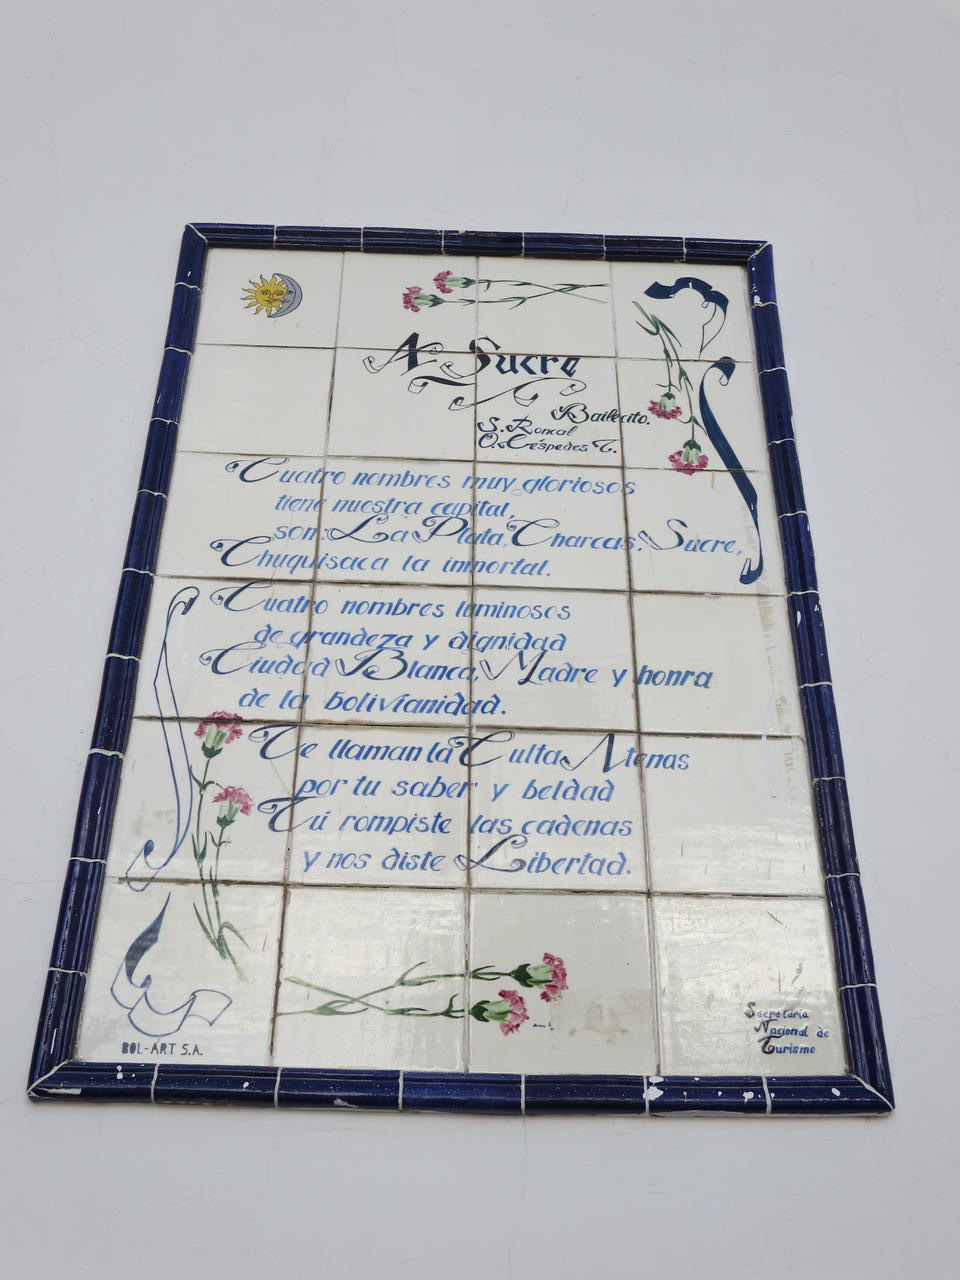 A Sucre
Bailecito.
S. Roncal
O. Céspedes T.
Cuatro nombres muy gloriosos
tiene nuestra capital,
son: La Plata, Charcas, Sucre,
Chuquisaca la inmortal.
Cuatro nombres luminosos
de grandeza y dignidad
Ciudad Blanca, Madre y honra
de la bolivianidad.
Te llaman la Culta Atenas
por tu saber y beldad
Tú rompiste las cadenas
y nos diste Libertad.
Secretaria
Nacional de
Turismo
BOL-ART S.A.